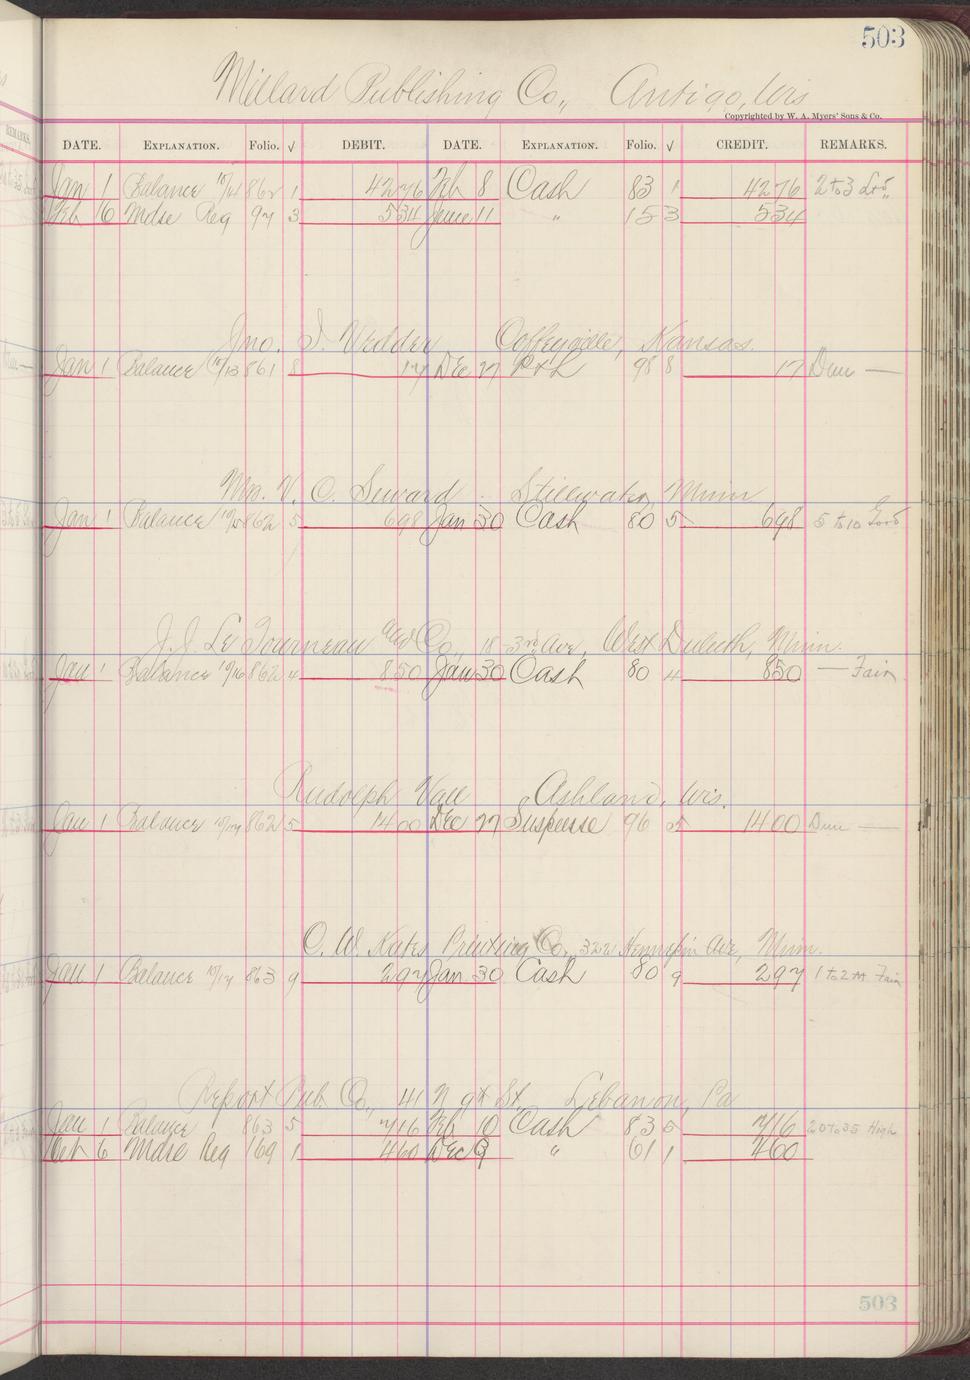 503
Millard Publishing Co., Antigo, Wis
Copyrighted by W. A. Myers' Sons & Co.
DATE. EXPLANATION. Folio. √ DEBIT. DATE. EXPLANATION. Folio. √ CREDIT. REMARKS.
Jan 1 Balance 862 1 4276 Feb 8 Cash 83 1 4276 2 to 3
Feb 16 Mdse Reg 97 3 534 June 11 " 15 3 534
Jno. J. Vedder Coffeyville, Kansas.
Jan 1 Balance 861 8 17 Dec 27 P&L 98 8 17 Dun —
V. C. Seward Stillwater, Minn
Jan 1 Balance 862 5 698 Jan 30 Cash 80 5 698 5 to 10 Good
J. J. Le Tourneau Adv Co., 18-3rd Ave, West Duluth, Minn.
Jan 1 Balance 10/16 862 4 850 Jan 30 Cash 80 4 850 — Fair
Rudolph Vall Ashland, Wis.
Jan 1 Balance 862 5 1400 Dec 27 Suspense 96 5 1400 Dun —
C. W. Kates Printing Co., Hennepin Ave, Minn.
Jan 1 Balance 863 9 297 Jan 30 Cash 80 9 297 1 to 2 M Fair
Report Pub. Co., 41 N 9th St., Lebanon, Pa
Jan 1 Balance 863 5 716 Feb 10 Cash 83 5 716 20 to 35 High
Oct 6 Mdse Reg 169 1 460 Dec 9 " 61 1 460
503